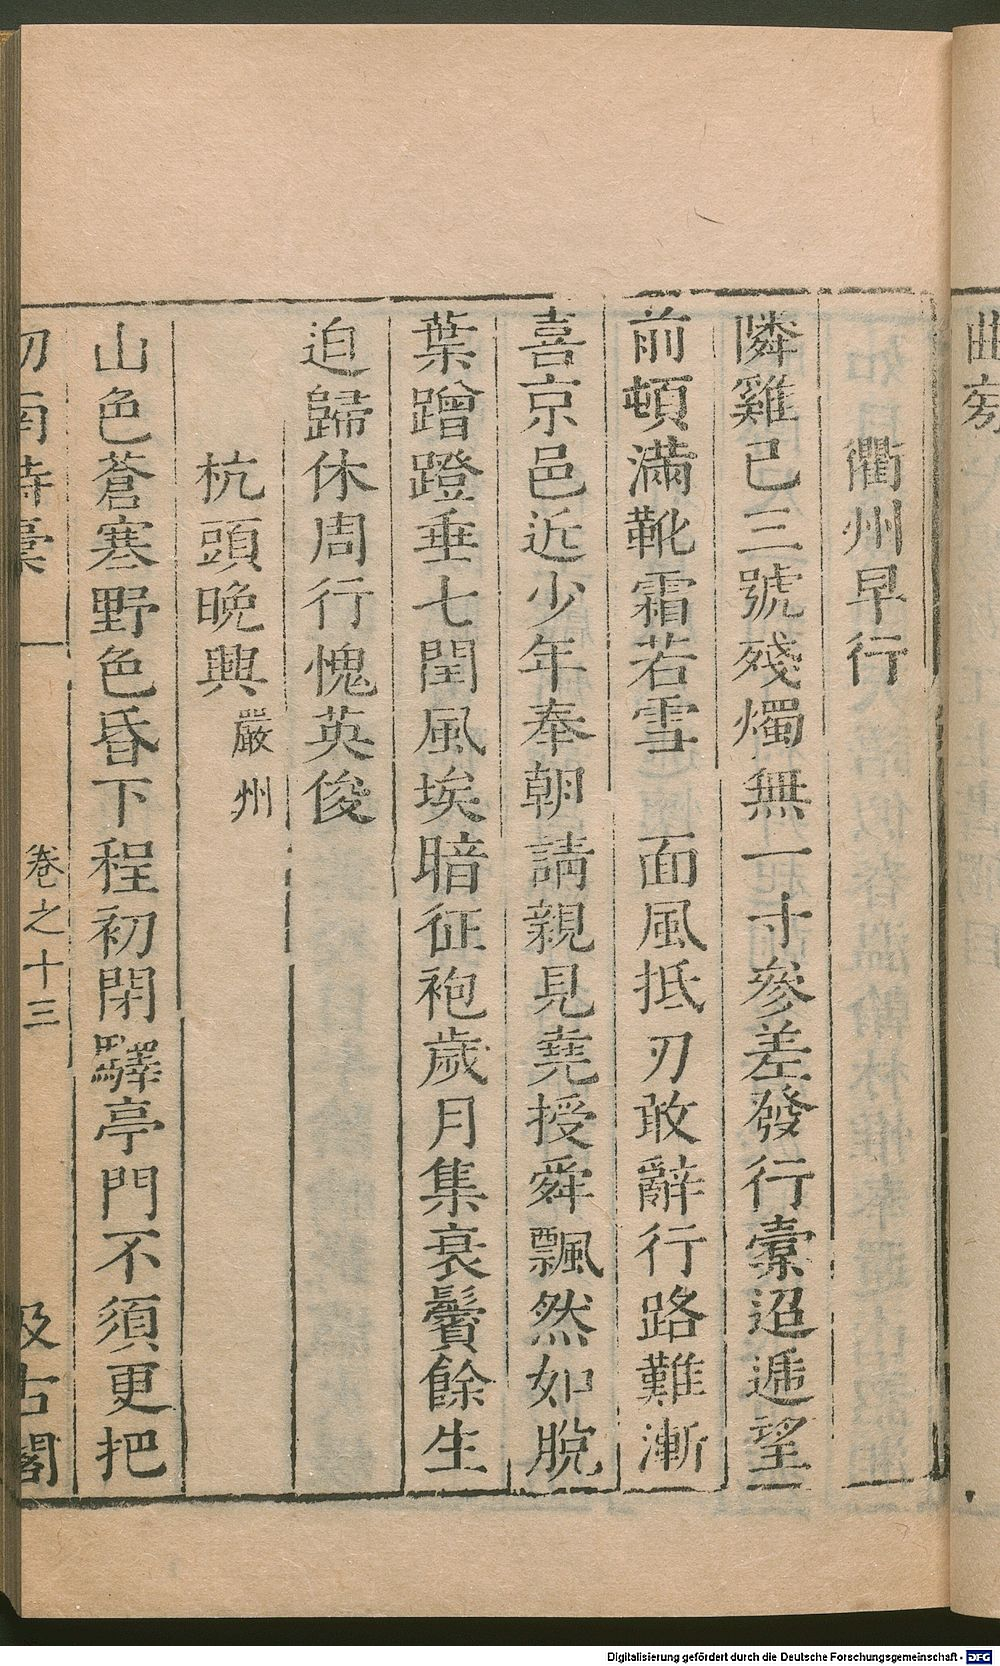 衢州早行
隣雞已三號殘燭無一寸參差發行橐迢遞望
前頓滿靴霜若雪　面風抵刃敢辭行路難漸
喜京邑近少年奉朝請親見堯授舜飄然如脫
葉蹭蹬垂七閏風埃暗征袍歲月集衰鬢餘生
迫歸休周行愧英俊
杭頭晚興 嚴州
山色蒼寒野色昏下程初閉驛亭門不須更把
卷之十三
汲古閣
Digitalisierung gefördert durch die Deutsche Forschungsgemeinschaft - DFG